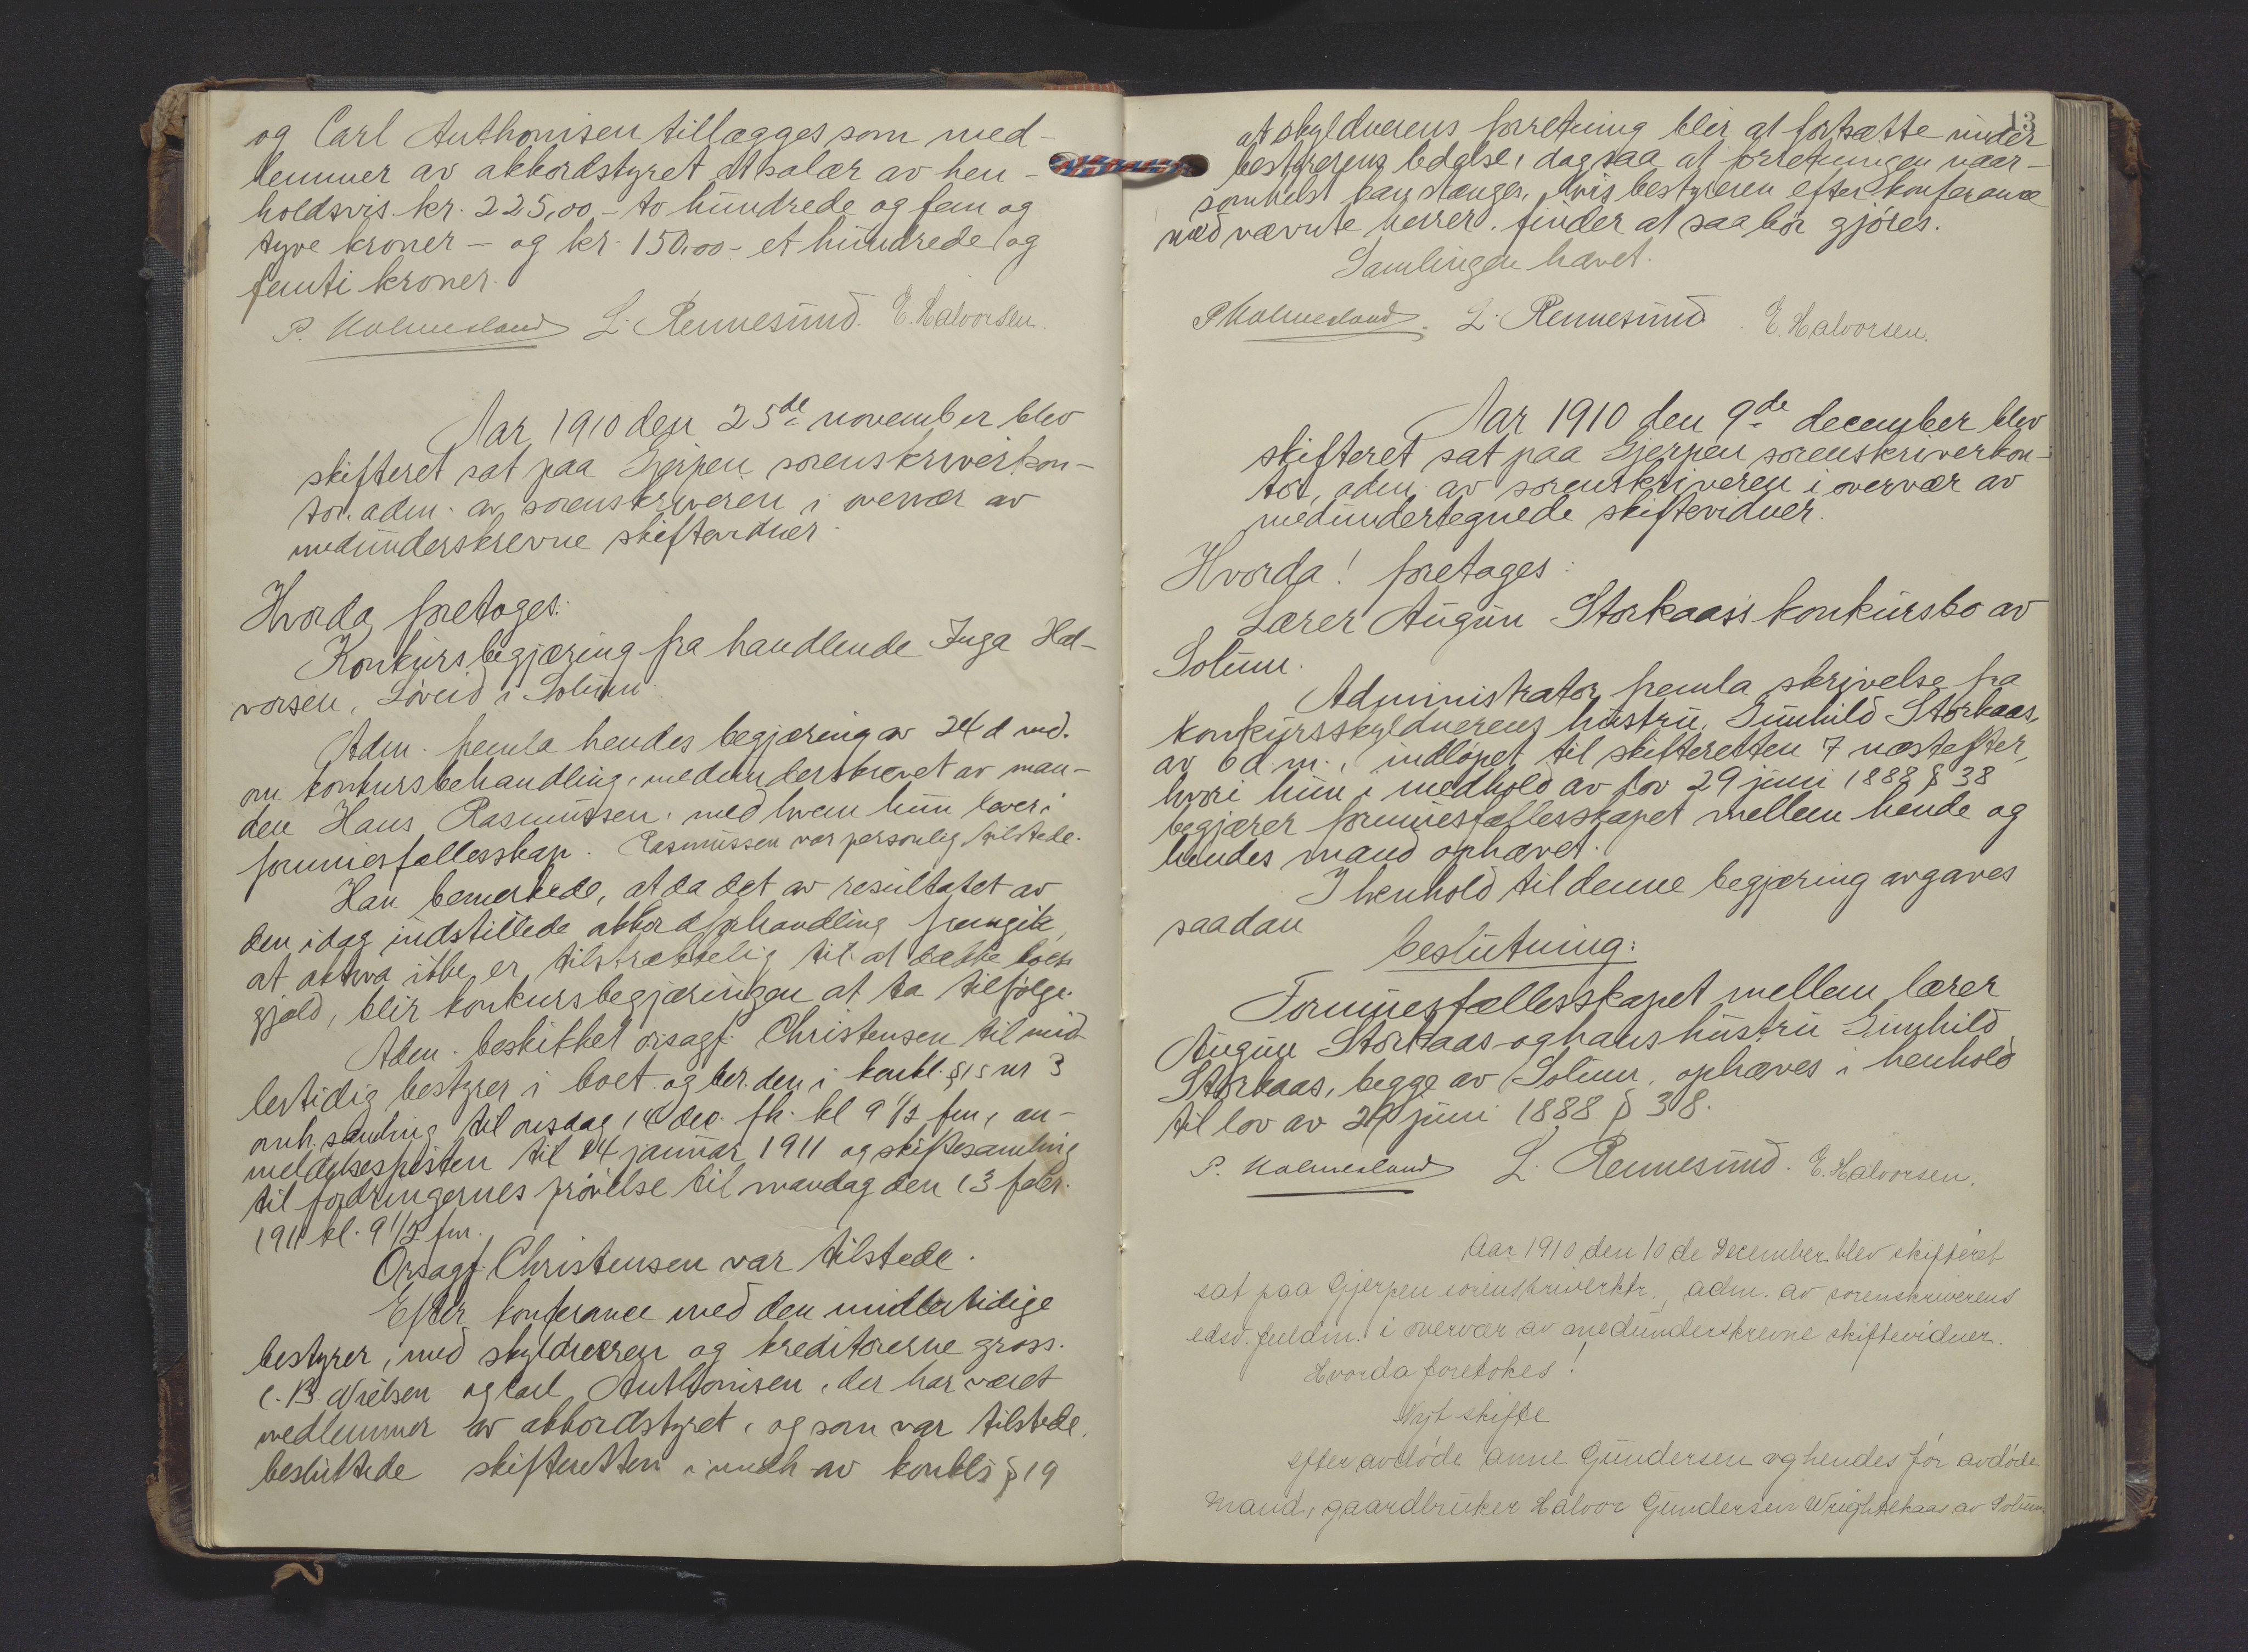 og Carl Authonisen tillægges som med-
lemmer av akkordstyret et salær av hen-
holdsvis kr. 225,00 - to hundrede og fem og
tyve kroner - og kr. 150,00 - et hundrede og
femti kroner.
P. Holmesland L. Rennesund. E. Halvorsen.
Aar 1910 den 25de november blev
skifteret sat paa Gjerpen sorenskriverkon-
tor. adm. av sorenskriveren i overvær av
medunderskrevne skiftevidner.
Hvorda foretoges:
Konkursbegjæring fra handlende Inga Hal-
vorsen, Løveid i Solum.
Adm. fremla hendes begjæring av 24 d md.
om konkursbehandling, medunderskrevet av man-
den Hans Rasmussen, med hvem hun lever i
formuesfællesskap. Rasmussen var personlig tilstede.
Han bemerkede, at da det av resultatet av
den idag indstillede akkordforhandling fremgik,
at aktiva ikke er tilstrækkelig til at dække boets
gjæld, blir konkursbegjæringen at ta tilfølge.
Adm. beskikket orsagf. Christensen til mid-
lertidig bestyrer i boet og ber. den i konkl. § 15 nr 3
omh. samling til onsdag 14 dec. fk. kl 9 1/2 fm, an-
meldelsesfristen til 14 januar 1911 og skiftesamling
til fordringernes prøvelse til mandag den 13 febr.
1911 kl. 9 1/2 fm.
Orsagf. Christensen var tilstede.
Efter konferance med den midlertidige
bestyrer, med skyldneren og kreditorerne gross.
C. B. Nielsen og Carl Authonisen, der har været
medlemmer av akkordstyret, og som var tilstede,
besluttede skifteretten i medh av konkls § 19
13
at skyldnerens forretning blir at fortsætte under
bestyrerens ledelse, dog saa at forretningen naar-
somhelst kan stænges, hvis bestyreren efter konferance
med nævnte herrer. finder at saa bør gjøres.
Samlingen hævet.
P Holmesland. L. Rennesund. E. Halvorsen.
Aar 1910 den 9de december blev
skifteret sat paa Gjerpen sorenskriverkon-
tor, adm. av sorenskriveren i overvær av
medundertegnede skiftevidner.
Hvorda! foretoges:
Lærer Augun Storkaas's konkursbo av
Solum.
Administrator fremla skrivelse fra
konkursskyldnerens hustru, Gunhild Storkaas,
av 6 d m., indløpet til skifteretten 7 næstefter,
hvori hun i medhold av lov 29 juni 1888 § 38
begjærer formuesfællesskapet mellem hende og
hendes mand ophævet.
I henhold til denne begjæring avgaves
saadan
beslutning:
Formuesfællesskapet mellem lærer
Augun Storkaas og hans hustru Gunhild
Storkaas, begge av Solum, ophæves i henhold
til lov av 29 juni 1888 § 38.
P. Holmesland L. Rennesund. E. Halvorsen.
Aar 1910 den 10de December blev skifteret
sat paa Gjerpen sorenskriverktr., adm. av sorenskriverens
edsv. fuldm. i overvær av medunderskrevne skiftevidner.
Hvorda foretokes!
Nyt skifte
efter avdøde Anne Gundersen og hendes før avdøde
mand, gaardbruker Halvor Gundersen Wrightekaas av Solum